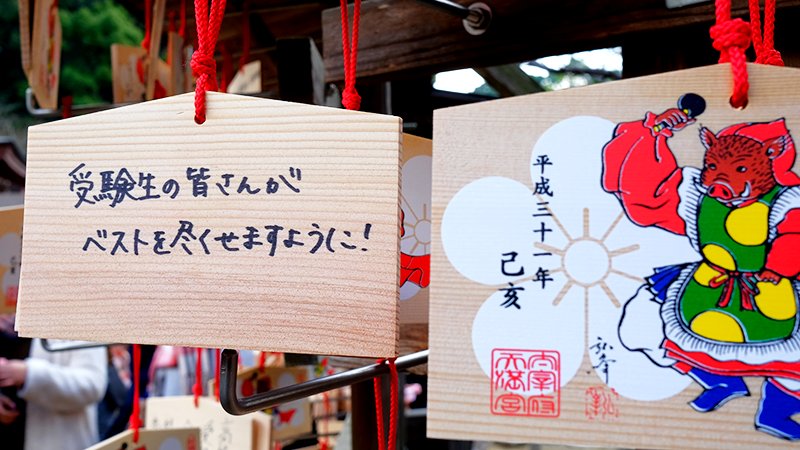 受験生の皆さんが
ベストを尽くせますように!
平成三十一年
己亥
太宰府
天満宮